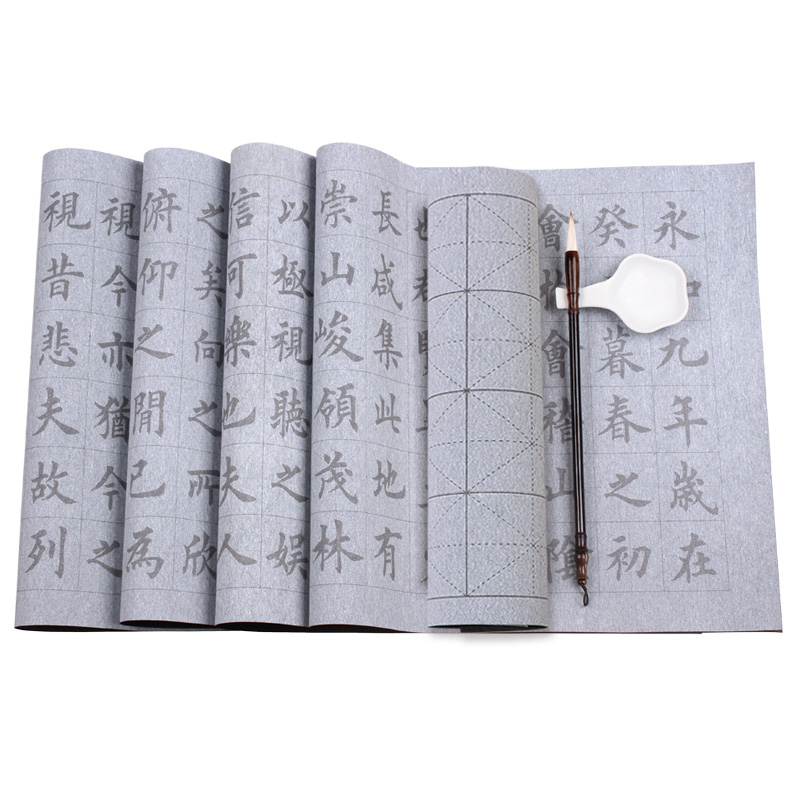 永九年歲在
癸暮春之初
會會稽山陰
長咸集此地有
崇山峻領茂林
以極視聽之娛
信可樂也夫人
之矣向之所欣
俯仰之閒已為
視今亦猶今之
視昔悲夫故列